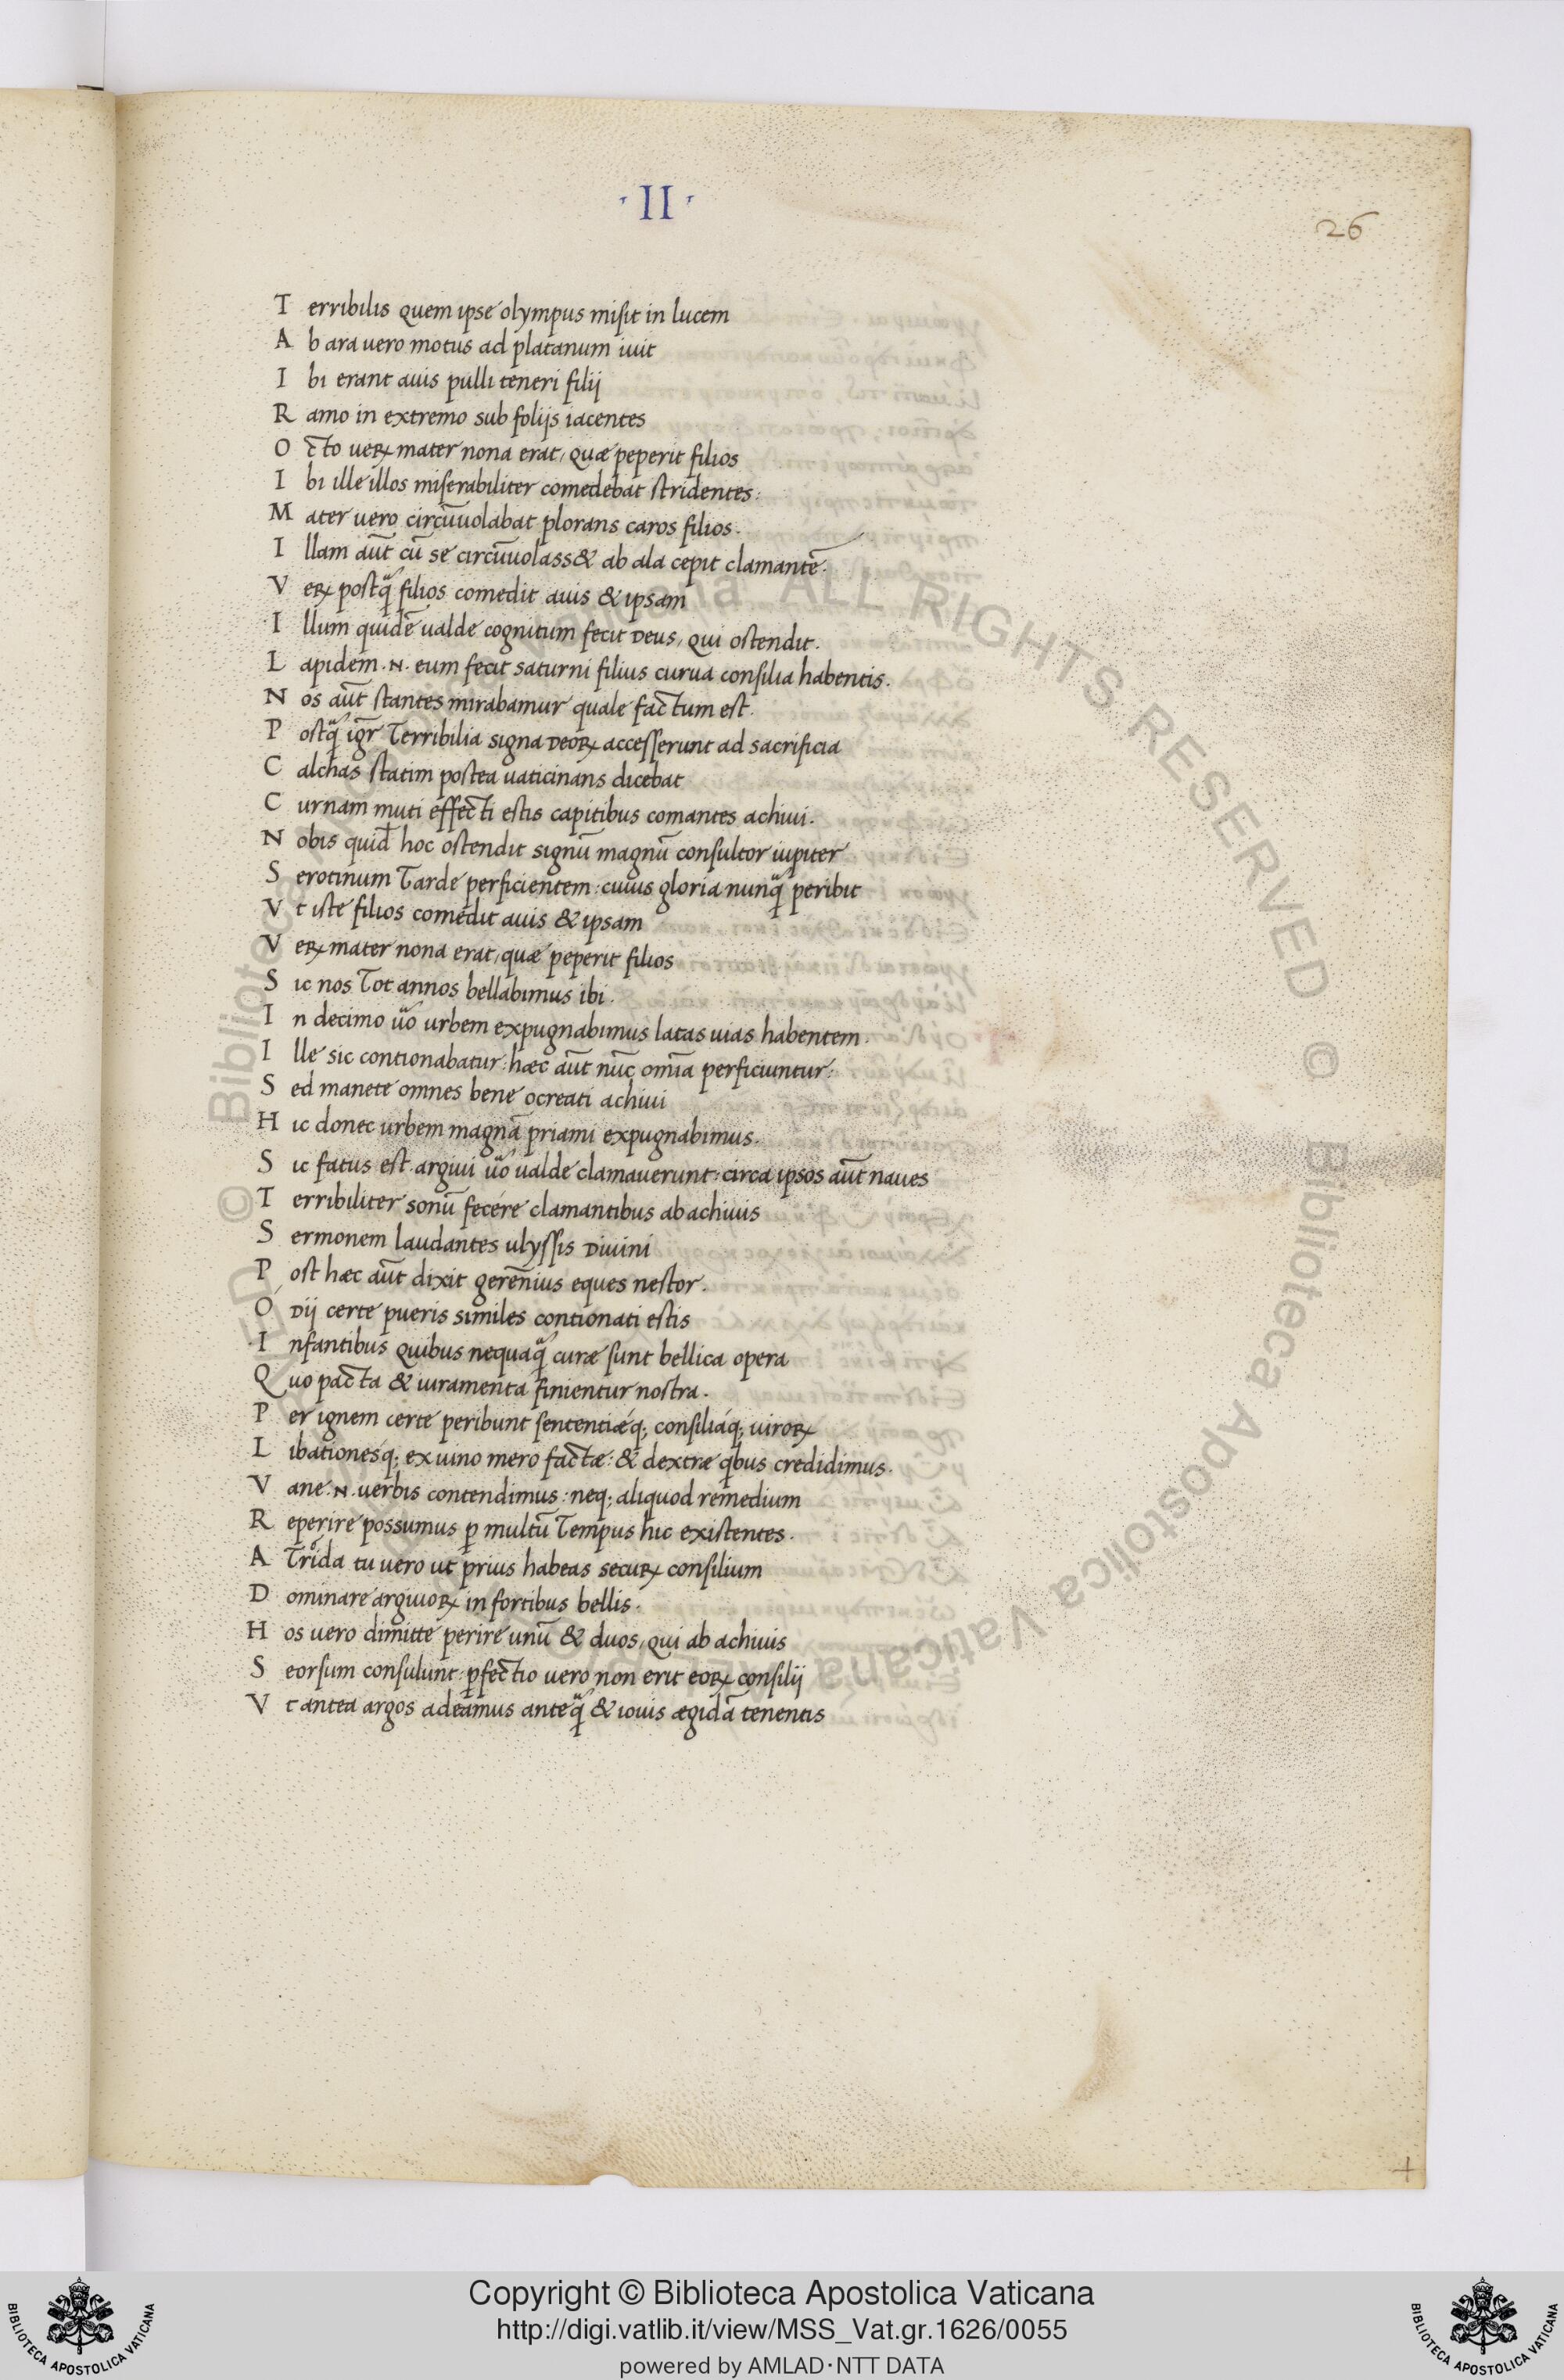 · II ·
26
T erribilis quem ipse olympus misit in lucem
A b ara uero motus ad platanum iuit
I bi erant auis pulli teneri filij
R amo in extremo sub folijs iacentes
O cto ueꝝ mater nona erat, quæ peperit filios
I bi ille illos miserabiliter comedebat stridentes:
M ater uero circūuolabat plorans caros filios.
I llam aūt cū se circūuolass& ab ala cepit clamantē.
V eꝝ postq̃ filios comedit auis & ipsam
I llum quidē ualde cognitum fecit Deus, qui ostendit.
L apidem .N. eum fecit saturni filius curua consilia habentis.
N os aūt stantes mirabamur quale factum est.
P ostq̃ igr̃ Terribilia signa deoꝝ accesserunt ad sacrificia
C alchas statim postea uaticinans dicebat
C urnam muti effecti estis capitibus comantes achiui.
N obis quid̄ hoc ostendit signū magnū consultor iupiter
S erotinum Tarde perficientem: cuius gloria nunq̃ peribit
V t iste filios comedit auis & ipsam
V eꝝ mater nona erat, quæ peperit filios
S ic nos Tot annos bellabimus ibi.
I n decimo ūo urbem expugnabimus latas uias habentem.
I lle sic contionabatur: hæc aūt nūc omīa perficiuntur:
S ed manete omnes bene ocreati achiui
H ic donec urbem magnā priami expugnabimus.
S ic fatus est. argiui ūo ualde clamauerunt: circa ipsos aūt naues
T erribiliter sonū fecere clamantibus ab achiuis
S ermonem laudantes ulyssis Diuini
P ost hæc aūt dixit gerēnius eques nestor.
O Dij certe pueris similes contionati estis
I nfantibus quibus nequaq̃ curæ sunt bellica opera
Q uo pacta & iuramenta finientur nostra.
P er ignem certe peribunt sententiæq; consiliaq; uiroꝝ
L ibationesq; ex uino mero factæ: & dextræ qbus credidimus.
V ane .N. uerbis contendimus: neq; aliquod remedium
R eperire possumus ꝑ multū Tempus hic existentes.
A Trida tu uero ut prius habeas secuꝝ consilium
D ominare argiuoꝝ in fortibus bellis.
H os uero dimitte perire unū & duos, qui ab achiuis
S eorsum consulunt: ꝑfectio uero non erit eoꝝ consilij
V t antea argos adeamus anteq̃ & iouis ægidā tenentis
Copyright © Biblioteca Apostolica Vaticana
http://digi.vatlib.it/view/MSS_Vat.gr.1626/0055
powered by AMLAD·NTT DATA